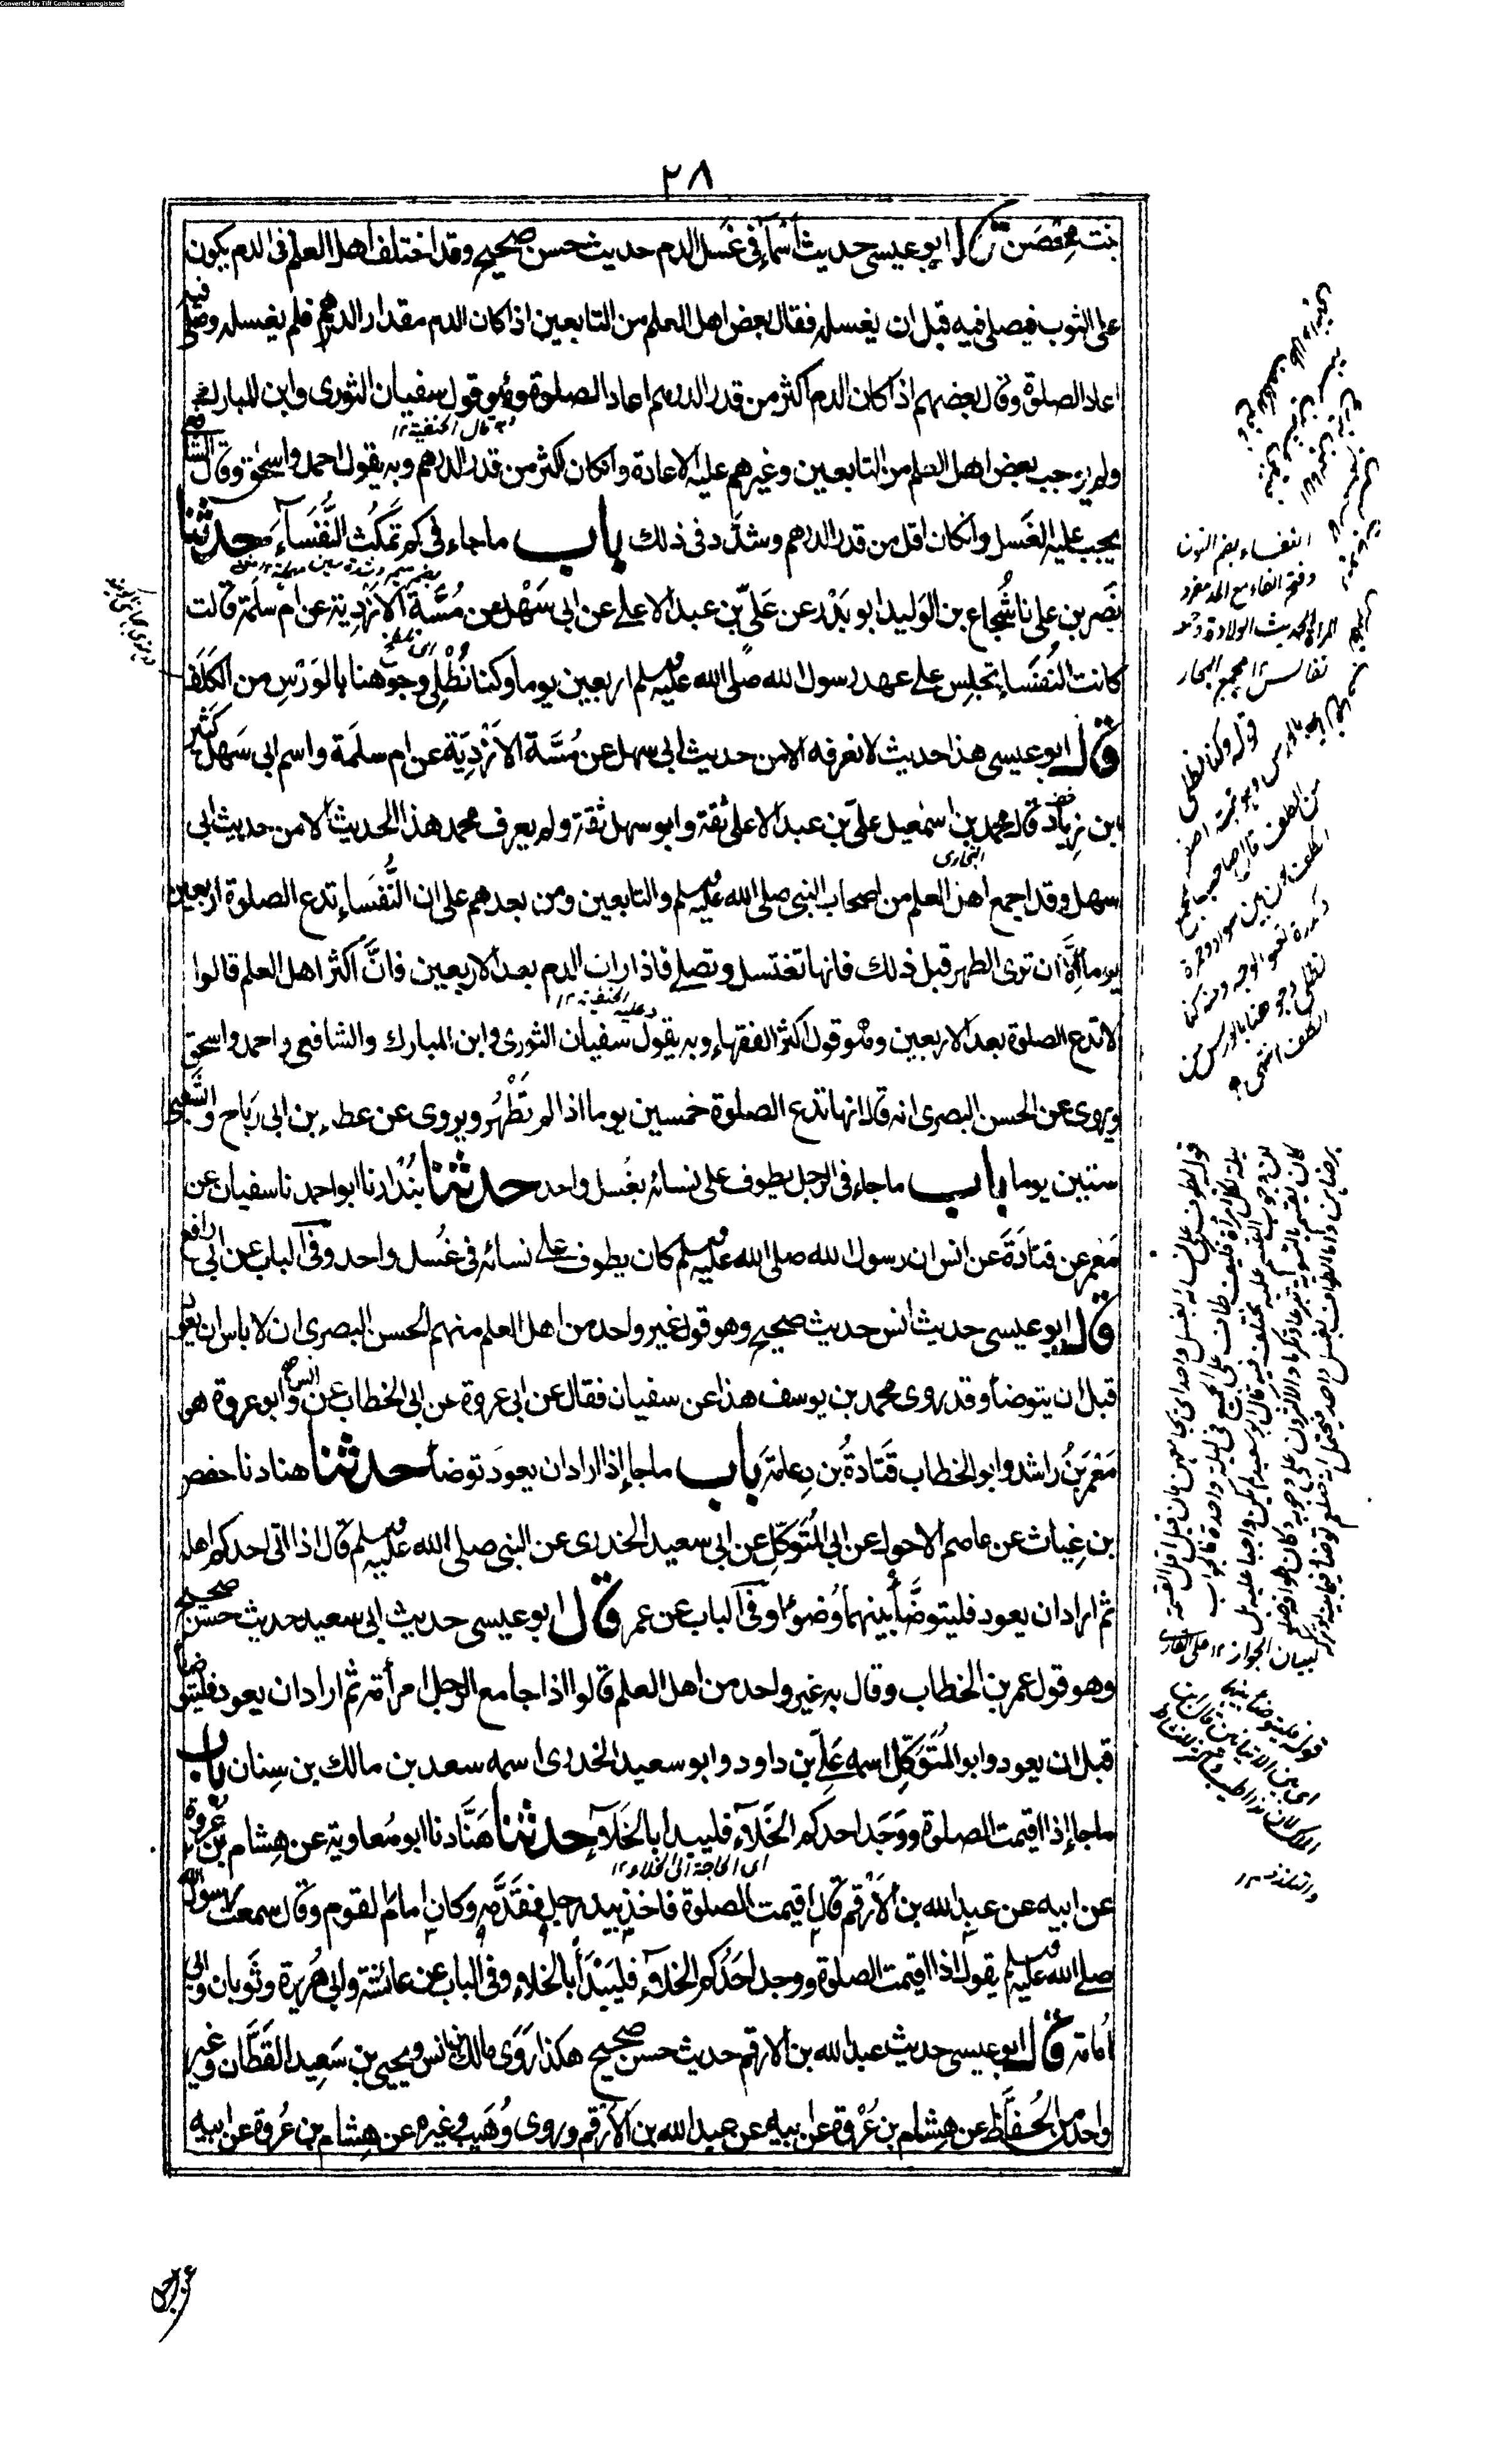 Converted by Tiff Combine - unregistered
٢٨
بنت محصن قال ابو عيسى حديث اسماء فى غسل الدم حديث حسن صحيح وقد اختلف اهل العلم فى الدم يكون
على الثوب فيصلى فيه قبل ان يغسله فقال بعض اهل العلم من التابعين اذا كان الدم مقدار الدرهم فلم يغسله وصلى فيه
اعاد الصلوة وقال بعضهم اذا كان الدم اكثر من قدر الدرهم اعاد الصلوة وهو قول سفيان الثورى وابن المبارك
وبه قال الحنفية ١٢
ولم يوجب بعض اهل العلم من التابعين وغيرهم عليه الاعادة وانكان اكثر من قدر الدرهم وبه يقول احمد واسحق وقال الشافعى
يجب عليه الغسل وانكان اقل من قدر الدرهم وشدد فى ذلك باب ما جاء فى كم تمكث النُّفَسَاء حدثنا
نصر بن على نا شُجاع بن الوليد ابو بَدْر عن عَلىّ بن عبد الاعلى عن ابى سَهْل عن مُسَّة الاَزْدِية عن ام سلمة قالت
كانت النُفَسَاء تجلس على عهد رسول الله صلى الله عليه وسلم اربعين يوما وكنا نُطْلِى وجوهنا بالوَرْسِ من الكَلَف
قال ابو عيسى هذا حديث لا نعرفه الا من حديث ابى سهل عن مُسَّة الاَزْدِيَّة عن ام سلمة واسم ابى سَهل كَثير
ابن زياد قال محمد بن اسمعيل علىّ بن عبد الاعلى ثقة وابو سهل ثقة ولم يعرف محمد هذا الحديث الا من حديث ابى
البخارى
سهل وقد اجمع اهل العلم من اصحاب النبى صلى الله عليه وسلم والتابعين ومن بعدهم على ان النُّفَسَاء تدع الصلوة اربعين
يوما اِلَّا ان ترى الطهر قبل ذلك فانها تغتسل وتصلى فاذا رات الدم بعد الاربعين فانَّ اكثر اهل العلم قالوا
وعليه الحنفية ١٢
لا تدع الصلوة بعد الاربعين وهو قول اكثر الفقهاء وبه يقول سفيان الثورى وابن المبارك والشافعى واحمد واسحق
ويروى عن الحسن البصرى انه قال انها تدع الصلوة خمسين يوما اذا لم تَطْهُر ويروى عن عطاء بن ابى رَبَاح والشَّعبى
ستين يوما باب ما جاء فى الرجل يطوف على نسائه بغُسل واحد حدثنا بُنْدار نا ابو احمد نا سفيان عن
مَعْمر عن قتادَةَ عن انس ان رسول الله صلى الله عليه وسلم كان يطوف على نسائه فى غُسل واحد وفى الباب عن ابى رافع
قال ابو عيسى حديث انس حديث صحيح وهو قول غير واحد من اهل العلم منهم الحسن البصرى ان لا باس ان يعود
قبل ان يتوضأ وقد روى محمد بن يوسف هذا عن سفيان فقال عن ابى عروة عن ابى الخطاب عن انس وابو عروة هو
مَعْمَر بنُ راشد وابو الخطاب قَتَادةُ بن دِعامة باب ما جاء اذا اراد ان يعود توضأ حدثنا هناد نا حفص
بن غِياث عن عاصم الاحول عن ابى المُتوَكِّلِ عن ابى سعيد الخدرى عن النبى صلى الله عليه وسلم قال اذا اتى احدكم اهله
ثم اراد ان يعود فليتوضَّأْ بينهما وُضوءًا وفى الباب عن عمر قال ابو عيسى حديث ابى سعيد حديث حسن صحيح
وهو قول عمر بن الخطاب وقال به غير واحد من اهل العلم قالوا اذا جامع الرجل امرأته ثم اراد ان يعود فليتوضأ
قبل ان يعود وابو المُتَوَكِّل اسمه عَلىّ بن داود وابو سعيد الخدرى اسمه سعد بن مالك بن سِنان باب
ما جاء اذا اقيمت الصلوة ووَجَد احدكم الخَلَاءَ فليبدا بالخَلَاءِ حدثنا هَنَّاد نا ابو مُعاوية عن هِشام بن عُروة
اى الحاجة الى الخلاء ١٢
عن ابيه عن عبد الله بن الاَرْقم قال اقيمت الصلوة فاخذ بيد رجل فقَدَّمه وكان امامَ القوم وقال سمعت رسول الله
صلى الله عليه وسلم يقول اذا اقيمت الصلوة ووجد احَدُكم الخلاءَ فليَبْدَأْ بالخلاء وفى الباب عن عائشة وابى هُريرة وثَوبان وابى
اُمامة قال ابو عيسى حديث عبد الله بن الارقم حديث حسن صحيح هكذا رَوَى مالك بن انس ويحيى بن سَعِيد القَطَّان وغير
واحد من الحُفَّاظ عن هِشام بن عُرْوة عن ابيه عن عبد الله بن الاَرْقم وروى وُهَيب وغيره عن هِشام بن عُروة عن ابيه
النفساء بضم النون
وفتح الفاء مع المد مفرد
المراة الحديث الولادة وجمعه
نفاس ١٢ مجمع البحار
قوله وكنا نطلى
لبيان الجواز ١٢ على القارى